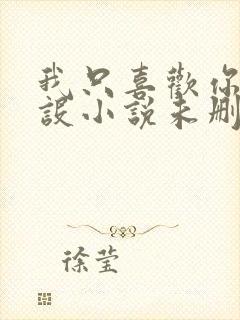 我只喜歡你
設小說未刪
徐莹